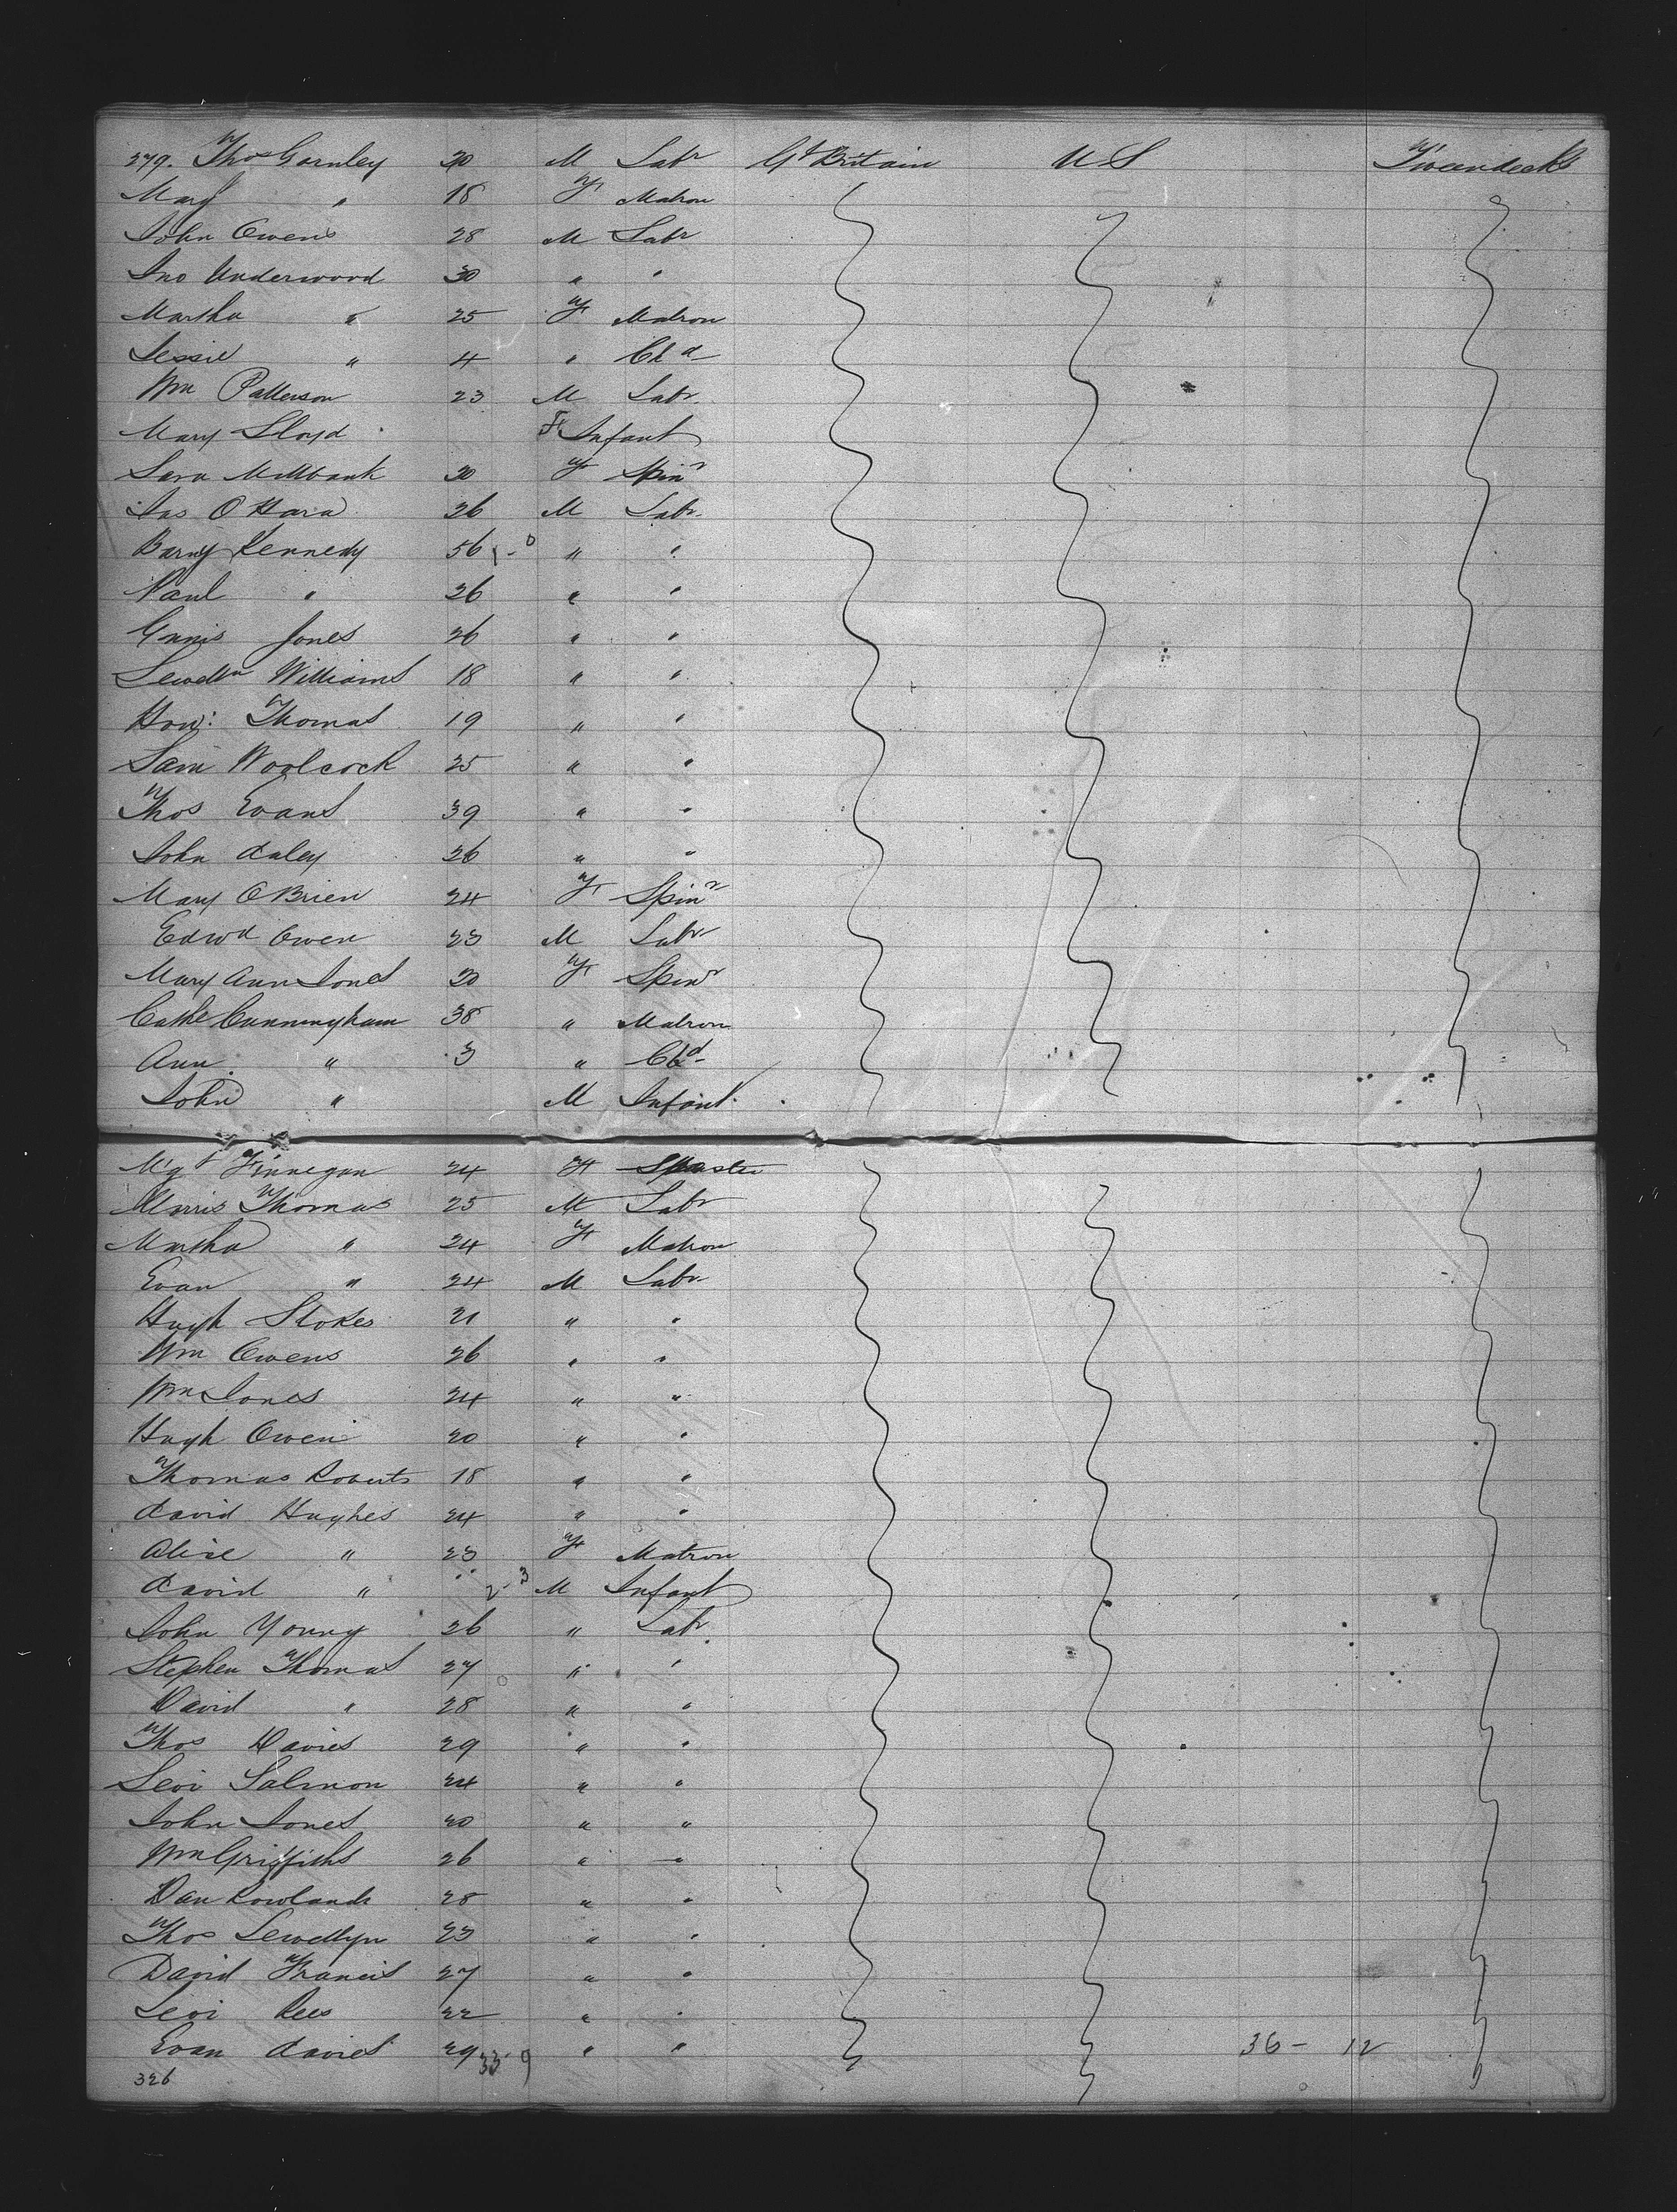 279. Thos Gornley 20 M Labr Gt Britain U S Tweendecks
Mary " 18 F Matron
John Owens 28 M Labr
Jno Underwood 30 " "
Martha " 25 F Matron
Jessie " 4 " Chd
Wm Patterson 23 M Labr.
Mary Lloyd F Infant
Sara Millbank 20 F Spinr
Jas O Hara 26 M Labr.
Barny Kennedy 56 " "
Paul " 26 " "
Ennis Jones 26 " "
Lewelln Williams 18 " "
How: Thomas 19 " "
Sam Woolcock 25 " "
Thos Evans 39 " "
John daley 26 " "
Mary O Brien 24 F Spinr
Edwd Owen 23 M Labr
Mary Ann Jones 20 F Spinr
Cathe Cunningham 38 " Matron
Ann " 3 " Chd
John " M Infant.
Mgt Finnegan 24 F
Morris Thomas 25 M Labr
Martha " 24 F Matron
Evan " 24 M Labr
Hugh Stokes 21 " "
Wm Owens 26 " "
Wm Jones 24 " "
Hugh Owen 20 " "
Thomas Roberts 18 " "
david Hughes 24 " "
Alice " 23 F Matron
david " 2-3 M Infant
John Young 26 " Labr
Stephen Thomas 27 " "
David " 28 " "
Thos Davies 29 " "
Levi Salmon 24 " "
John Jones 20 " "
Wm Griffiths 26 " "
Dan Rowlands 28 " "
Thos Lewellyn 23 " "
David Francis 27 " "
Levi Rees 22 " "
Evan davies 29 33-9 " " 36- 12
326